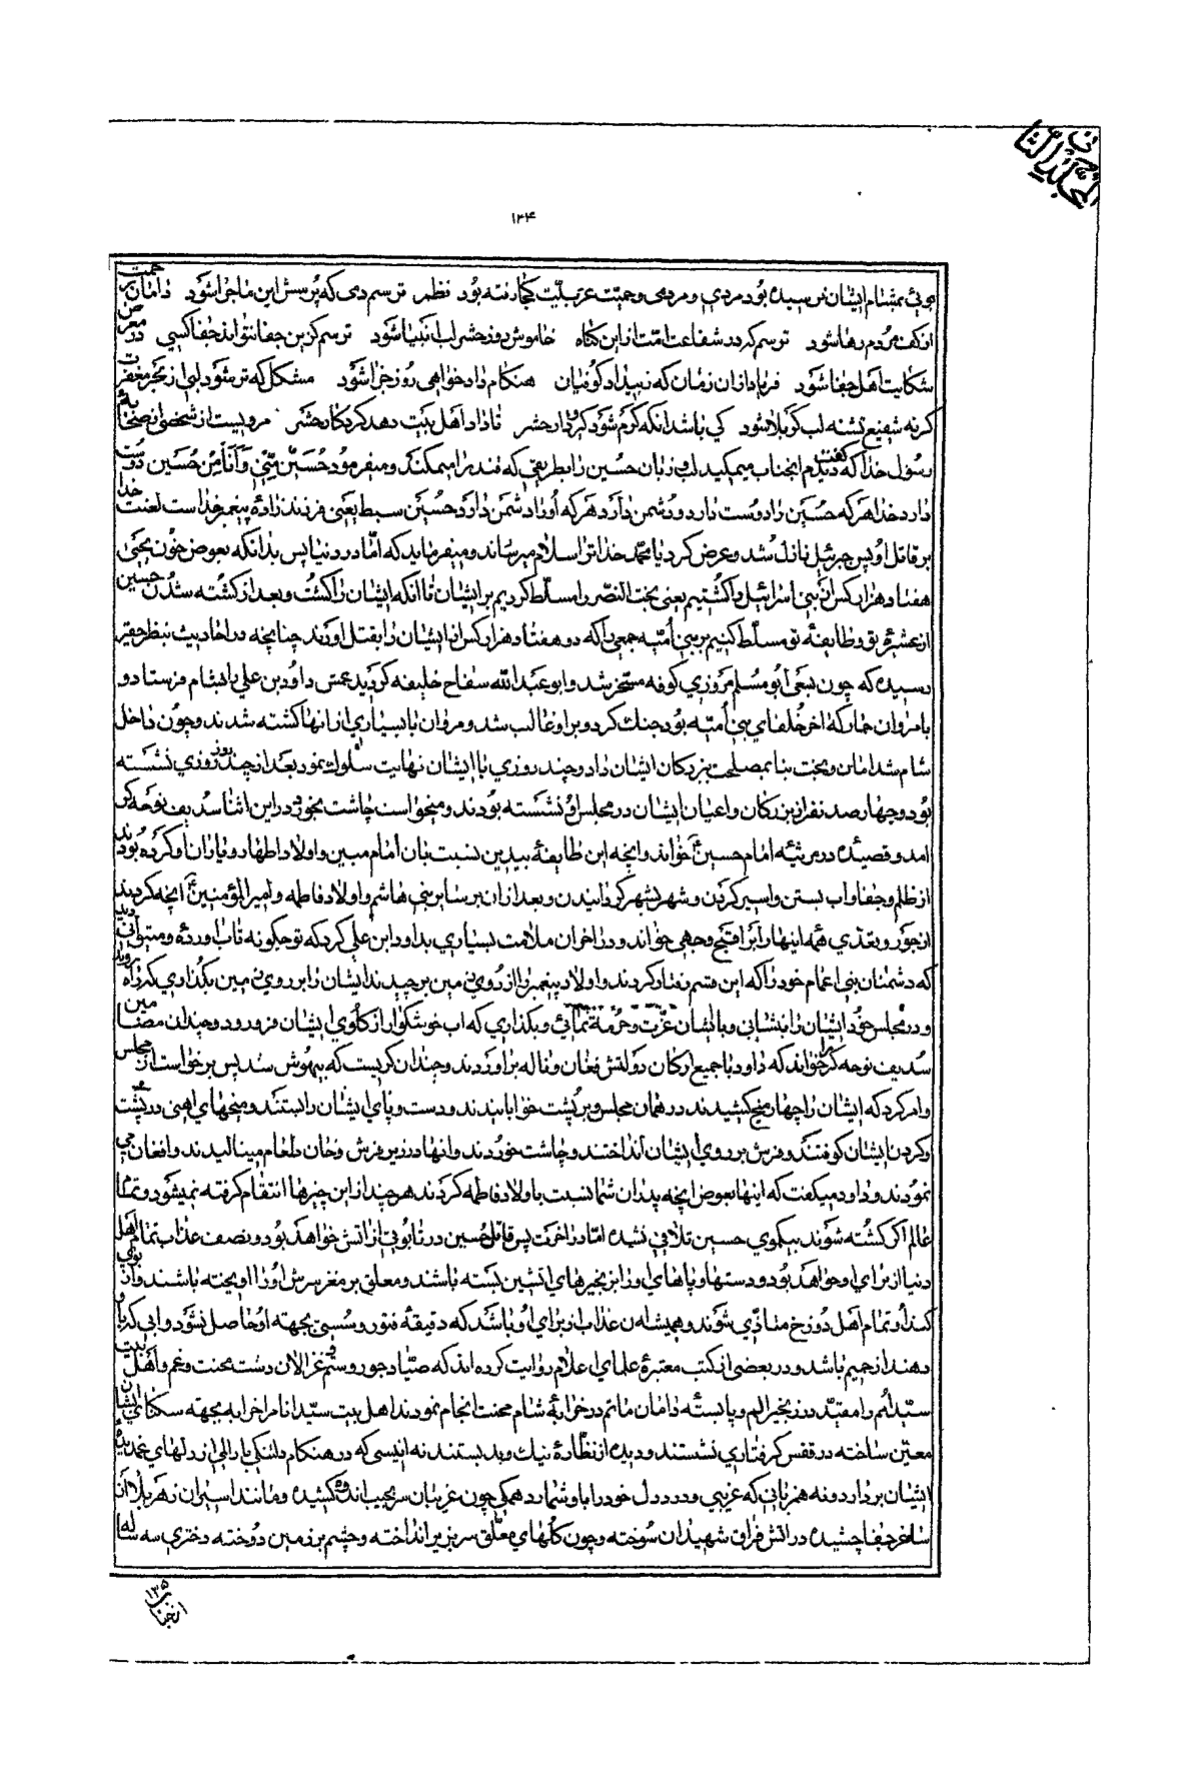 المجلد الثانی
۱۲۴
بوئی بمشام ایشان نرسیده بود مردی و مردمی و حمیت عربیت کجا رفته بود نظم ترسم دمی که پرسش این ماجرا شود دامان رحمت
از کف مردم رها شود ترسم کزد در شفاعت امت از این گناه خاموش روز حشر لب انبیا شود ترسم کزین جفا نتواند جفا کسی در معرض
شکایت اهل جفا شود فریاد از ان زمان که ز بیداد کوفیان هنکام داد خواهی روز جزا شود مشکل که تر شود لبی از بحر مغفرت
کر نه شفیع تشنه لب کربلا شود کی باشد انکه کرم شود کیر و دار حشر تا داد اهل بیت دهد کردکار حشر مرویست از شخصی از صحابهٔ
رسول خدا که گفت دیدم انجناب میمکید لب و زبان حسین را بطریقی که قند را میمکند و میفرمود حسین منی و انا من حسین دوست
دارد خدا هر که حسین را دوست دارد و دشمن دارد هر که او را دشمن دارد حسین سبط یعنی فرزند زادهٔ پیغمبر خداست لعنت خدا
بر قاتل او پس جبرئیل نازل شد و عرض کرد یا محمد خدا ترا سلام میرساند و میفرماید که اما در دنیا پس بدانکه بعوض خون یحیی
هفتاد هزار کس از بنی اسرائیل را کشتیم یعنی بخت النصر را مسلط کردیم بر ایشان تا انکه ایشان را کشت و بعد از کشته شدن حسین
از عشیرهٔ تو و طایفهٔ تو مسلط کنیم بر بنی امیه جمعی را که دو هفتاد هزار کس از ایشان را بقتل اورند چنانچه در احادیث بنظر حقیر
رسیده که چون بسعی ابو مسلم مروزی کوفه مسخر شد و ابو عبد الله سفاح خلیفه کردید عمش داود بن علی را بشام فرستاد و
با مروان حمار که اخر خلفای بنی امیه بود جنك کرد و بر او غالب شد و مروان با بسیاری از انها کشته شدند و چون داخل
شام شد امان و بخت بنا بمصلحت بزرکان ایشان داد و چند روزی با ایشان نهایت سلوك نمود بعد از چند روز روزی نشسته
بود و چهار صد نفر از بزرکان و اعیان ایشان در مجلس او نشسته بودند و میخواست چاشت بخورد در این اثنا سدیف نوحه کر
امد و قصیده در مرثیه امام حسین خواند و انچه این طایفهٔ بیدین نسبت بان امام مبین و اولاد اطهار و یاران او کرده بودند
از ظلم و جفا و اب بستن و اسیر کردن و شهر بشهر کردانیدن و بعد از ان بر سایر بنی هاشم و اولاد فاطمه و امیر المؤمنین انچه کردند
از جور و تعدی همه اینها را بر اقبح وجهی خواند و در اخر ان ملامت بسیاری بداود ابن علی کرد که تو چکونه تاب اورده و میتوانی دید
که دشمنان بنی اعمام خود را که این قسم رفتار کردند و اولاد پیغمبر را از روی زمین برچیدند ایشان را بر روی زمین بکذاری که راه روند
و در مجلس خود ایشان را بنشانی و بایشان عزت و حرمة نمائی و بکذاری که اب خوشکوار از کلوی ایشان فرو رود و چندان مضامین
سدیف نوحه کر خواند که داود با جمیع ارکان دولتش فغان و ناله براوردند و چندان کریست که بیهوش شد پس برخواست از مجلس
و امر کرد که ایشان را چهار میخ کشیدند در همان مجلس و بر پشت خوابانیدند و دست و پای ایشان را بستند و میخهای اهنی در پشت
و کردن ایشان کوفتند و فرش بر روی ایشان انداختند و چاشت خوردند و انها در زیر فرش و خان طعام مینالیدند و افغان می
نمودند و داود میکفت که اینها بعوض انچه پدران شما نسبت باولاد فاطمه کردند هر چند از این چیزها انتقام کرفته نمیشود و تمام
عالم اکر کشته شوند بیکموی حسین تلافی نشده اما در اخرت پس قاتل حسین در تابوتی از اتش خواهد بود و نصف عذاب تمام اهل
دنیا از برای او خواهد بود و دستها و پاهای او را بزنجیرهای اتشین بسته باشند و معلق بر مغز سرش او را اویخته باشند و از بوی
کند او تمام اهل دوزخ متاذی شوند و همیشه ان عذاب از برای او باشد که دقیقهٔ فتور و سستی بجهته او حاصل نشود و ابی که باو
دهند از حمیم باشد و در بعضی از کتب معتبرهٔ علمای اعلام روایت کرده اند که صیاد جور و ستم غزالان دشت محنت و غم و اهل بیت
سید امم را مقید در زنجیر الم و پابستهٔ دامان ماتم در خرابهٔ شام محنت انجام نمودند اهل بیت سید انام را خرابه بجهته سکنای ایشان
معین ساخته در قفس کرفتاری نشستند و دیده از نظارهٔ نیك و بد بستند نه انیسی که در هنکام دلتنکی بار المی از دلهای غمدیدهٔ
ایشان بردارد و نه همزبانی که غریبی و درد دل خود را با و شمارد همکی چون غریبان سر بجیب اندوه کشیده و مانند اسیران زهر بلا از
ساغر جفا چشیده در اتش فراق شهیدان سوخته و چون کلهای معلق سر بزیر انداخته و چشم بر زمین دوخته دختری سه ساله